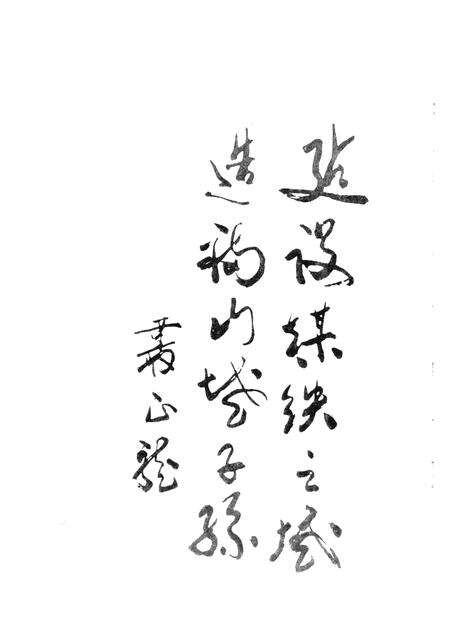 建设煤鉄之城
造福山城子孫
叢正龍